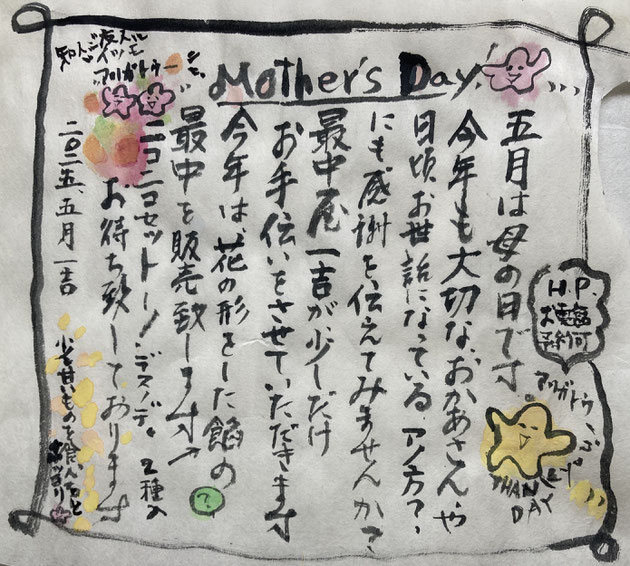 Mother's Day
五月は母の日です。
今年も大切な、おかあさんや
日頃お世話になっているアノ方?、
にも感謝を、伝えてみませんか?
最中屋一吉が、少しだけ
お手伝いをさせていただきます
今年は、花の形をした餡の
最中を販売致します→
?
ニコニコセットーノデスノデ 2種入
お待ち致しております
二〇二五、五月 一吉
H.P.
お電話
予約可
アリガトウ
THANK
DAY
少々甘いものを食べると
ホッコリ
アリガトゥー